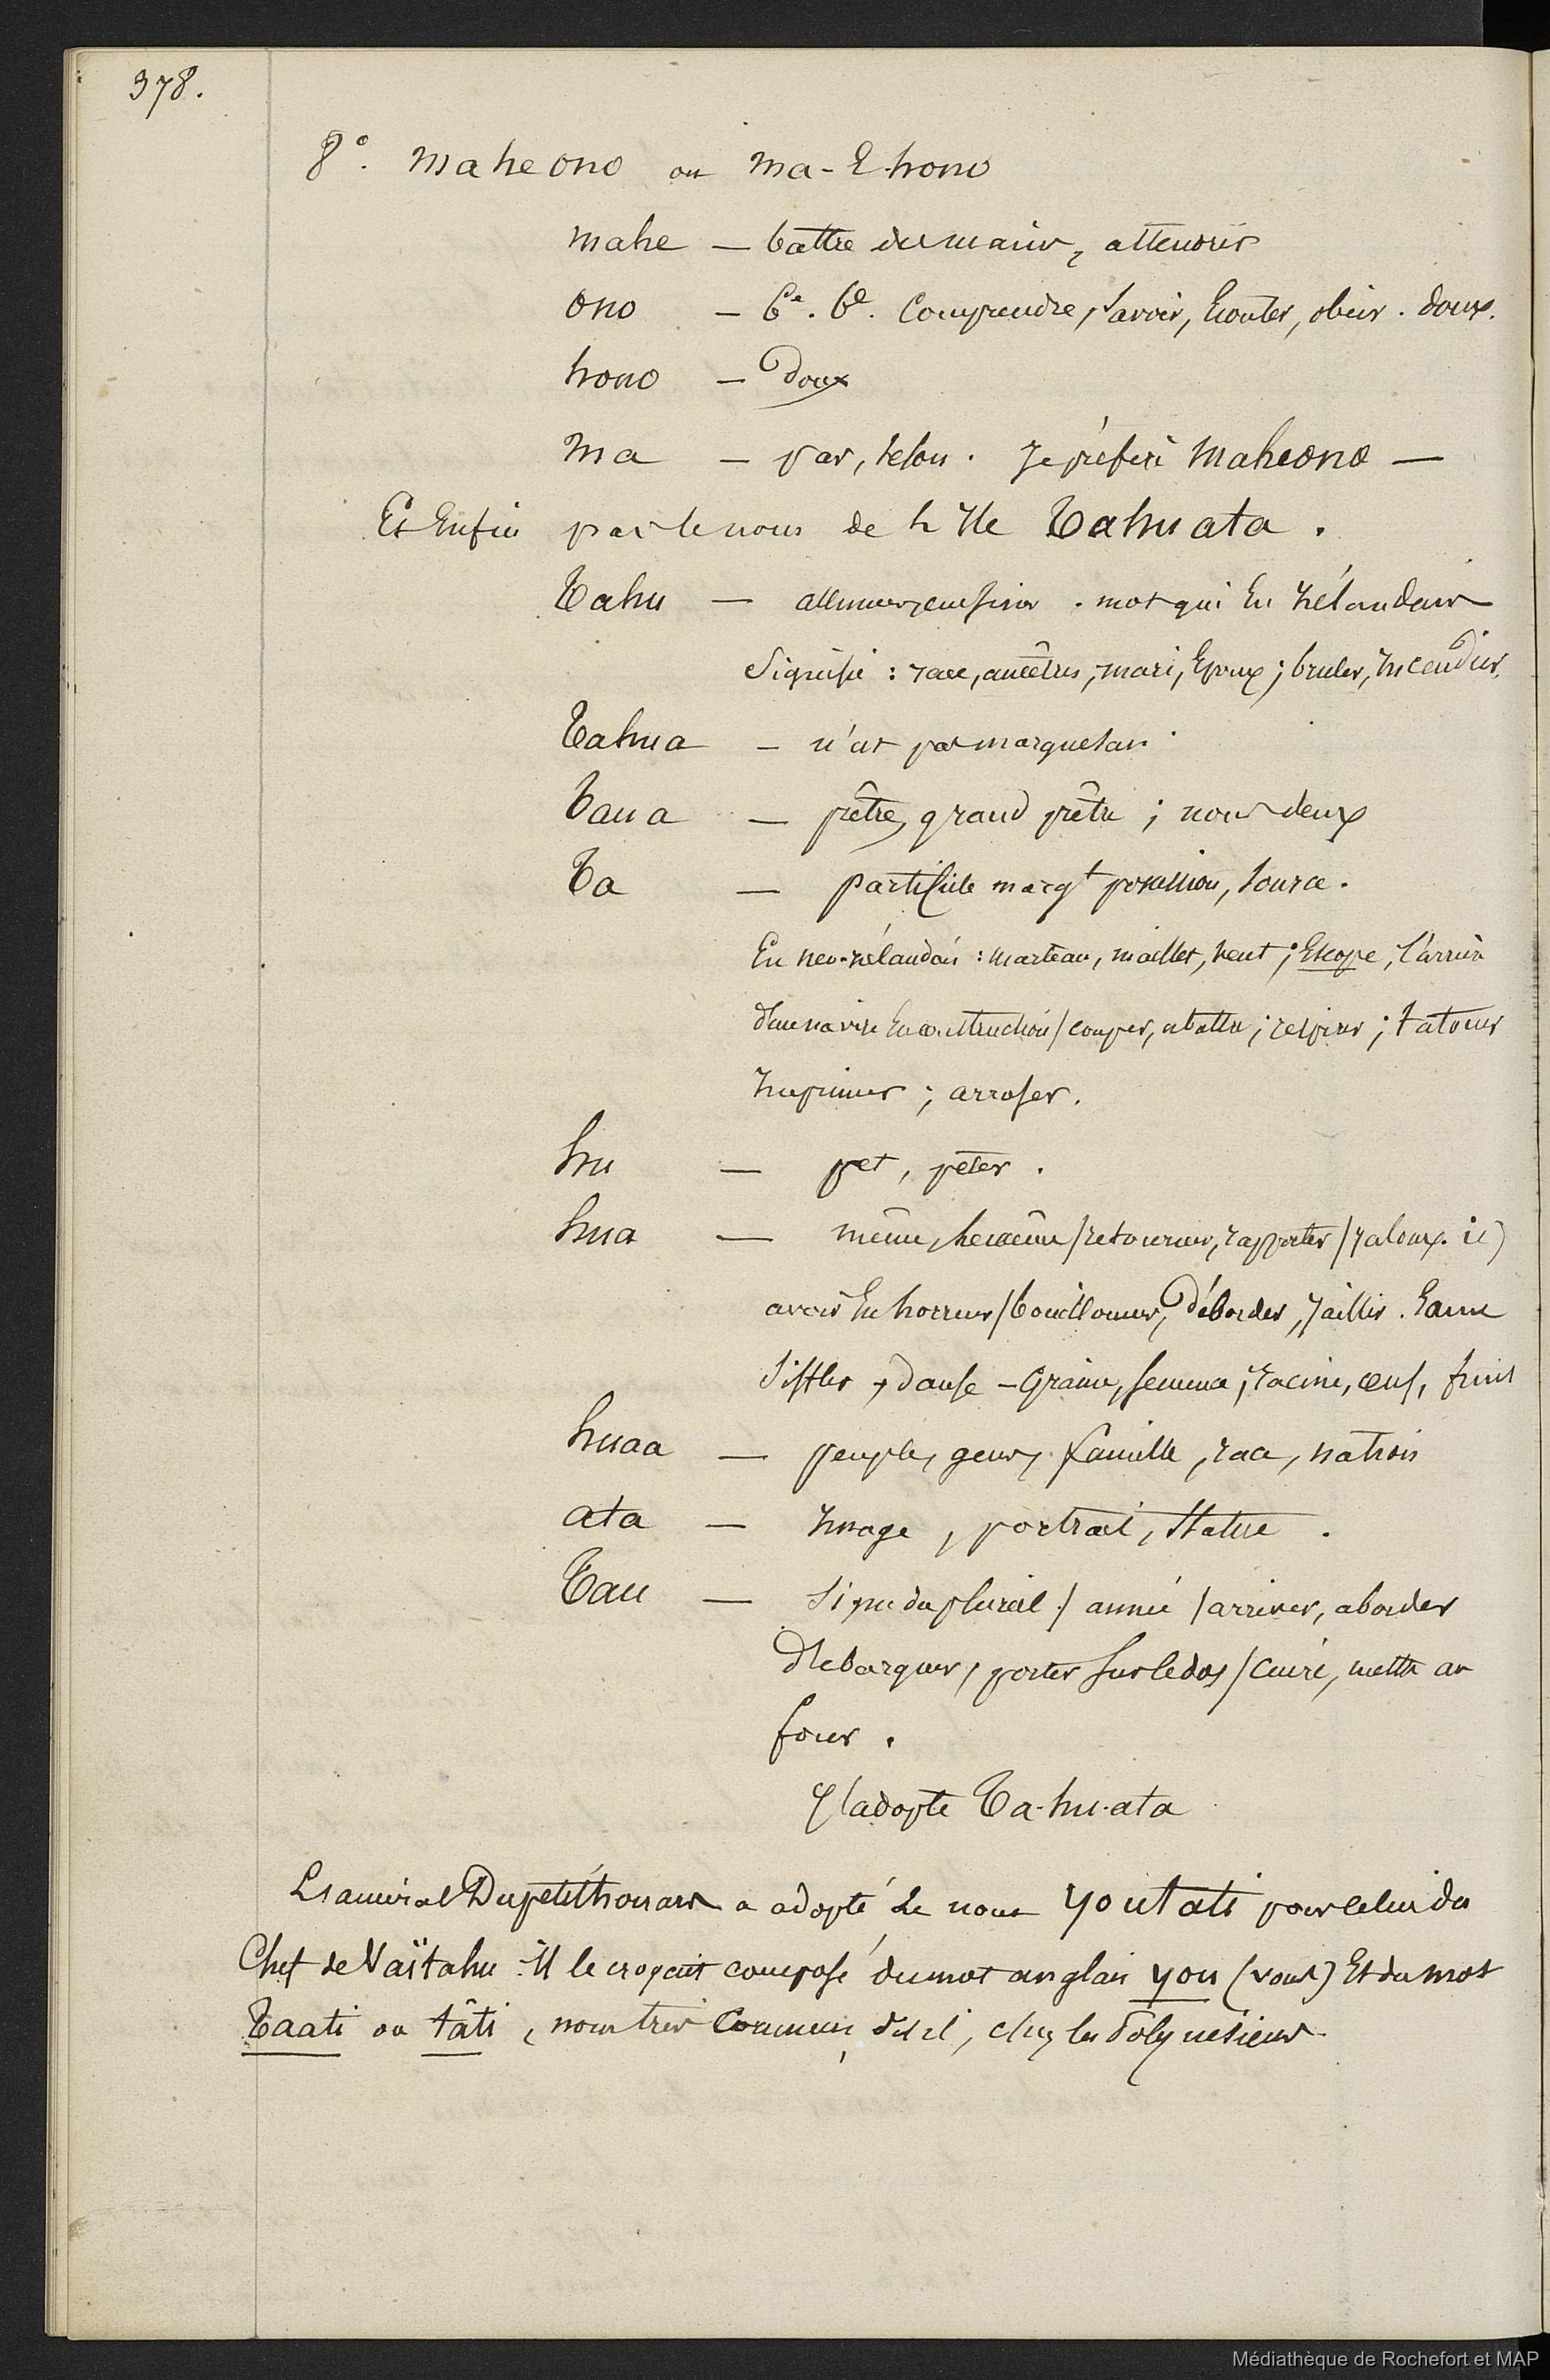 378.
8°. Maheono ou Ma-E-hono
mahe — battre des mains, attendrir
ono — Comprendre, Savoir, Ecouter, obéir. doux.
hono — Doux
Ma — par, selon. Je préfère Maheono —
Et Enfin par le nom de l'Ile Tahuata.
Tahu — allumer, enfiler. mot qui En Zélandais
Signifie : race, ancêtres, mari, Epoux ; bruler, Incendier.
Tahua — n'est pas marquesan.
Taua — prêtre, grand prêtre ; nous deux
Ta — particule marqt possession, source.
En neo-zélandais : marteau, maillet, vent ; Escope, l'arrière
d'un navire En construction / couper, abattre ; respirer ; tatouer
Imprimer ; arroser.
hu — pet, péter.
hua — même, lui même / retourner, rapporter / Jaloux.
avoir En horreur / bouillonner, Déborder, Jaillir. Ecume
Siffler, danse — Graine, semence, racine, œuf, fruit
huaa — peuple, gens, famille, race, nation
ata — Image, portrait, Statue.
Tau — Signe du pluriel / année / arriver, aborder
Débarquer, porter sur le dos / Cuire, mettre au
four.
J'adopte Ta-hu-ata
L'amiral Dupetit-thouars a adopté le nom Youtati pour celui du
Chef de Vaïtahu : Il le croyait composé du mot anglais you (vous) Et du mot
Taati ou tâti, nom très Commun, dit il, chez les Polynésiens.
Médiathèque de Rochefort et MAP